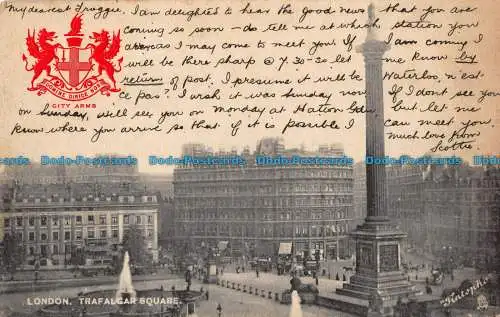 My dearest Froggie, I am delighted to hear the good news that you are
coming so soon – do tell me at which station you
as I may come to meet you. If I am coming I
will be there sharp @ 7.30-30. let me know by
return of post. I presume it will be Waterloo, n'est-
ce pas? I wish it was Sunday now. If I don't see you
on Sunday, will see you on Monday at Hatton but let me
know where you arrive so that if it is possible I can meet you.
Much love from
Scottie.
DOMINE DIRIGE NOS
CITY ARMS
Dodo-Postcards Dodo-Postcards Dodo-Postcards Dodo-Postcards Dodo-Postcards Dodo-Postcards
LONDON. TRAFALGAR SQUARE.